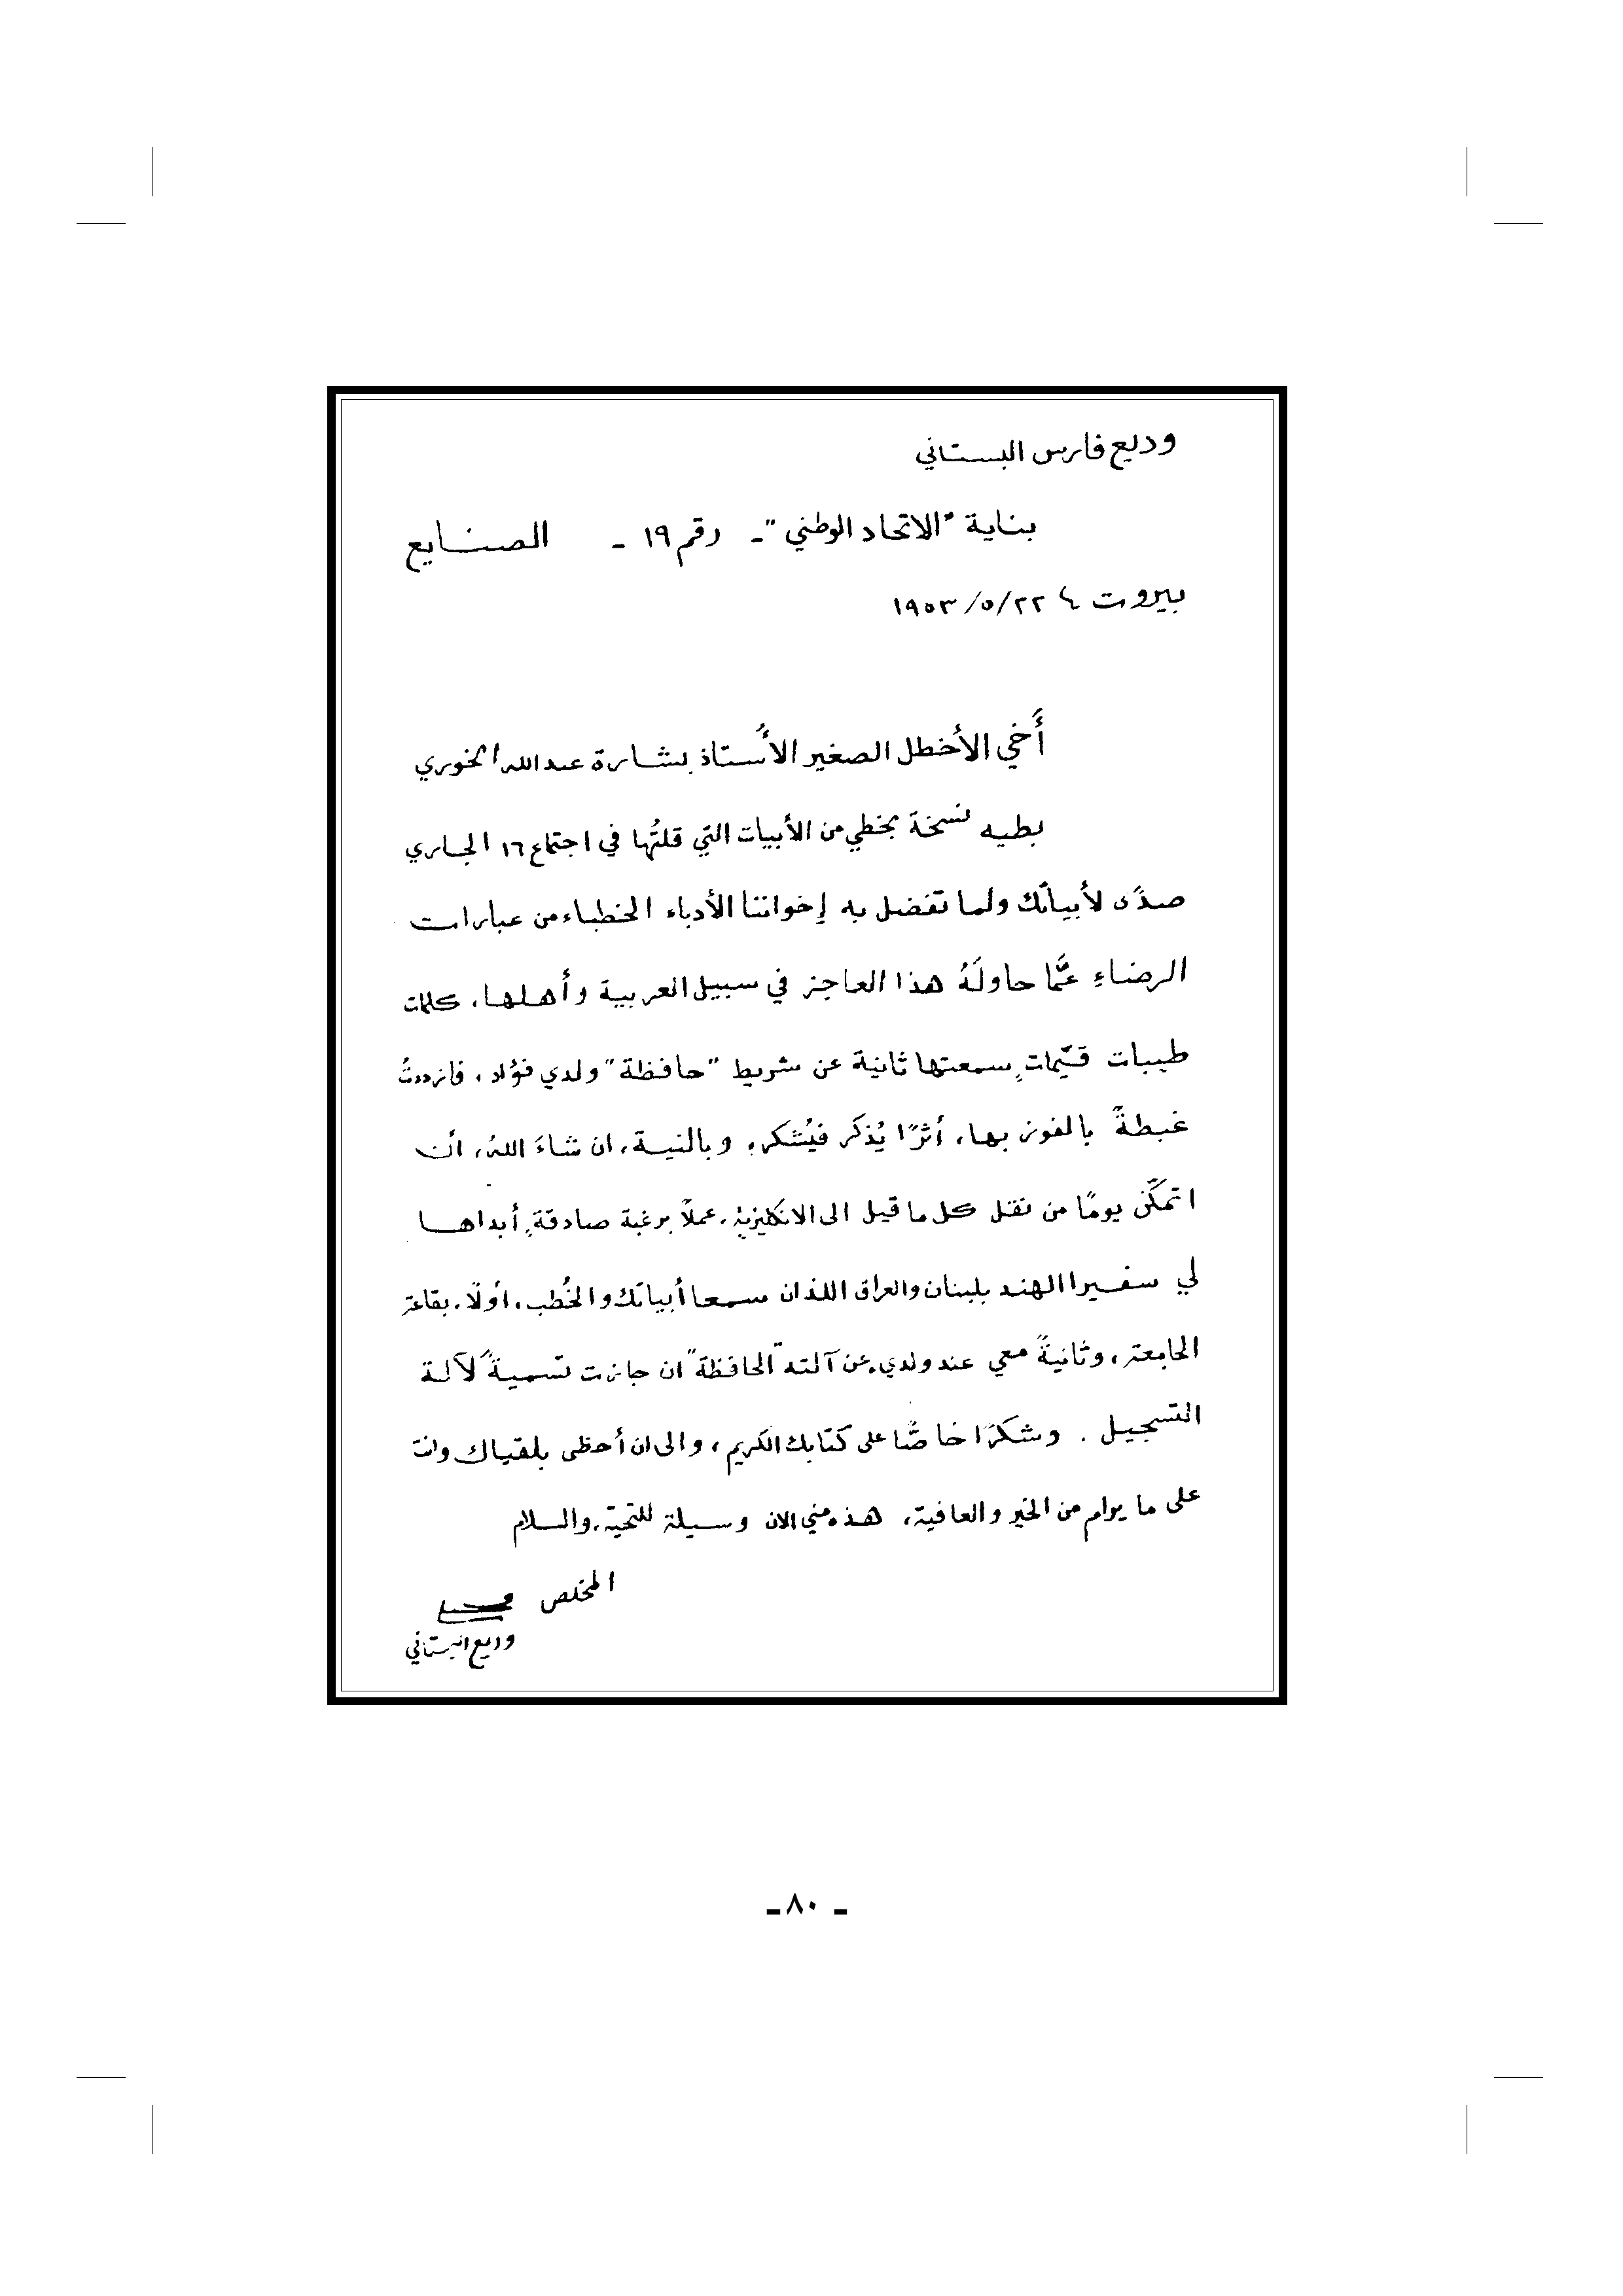 وديع فارس البستاني
بناية "الاتحاد الوطني" - رقم ١٩ - الصنايع
بيروت ٢٢/٥/١٩٥٣
أَخي الأخطل الصغير الأُستاذ بشارة عبدالله الخوري
بطيه نسخة بخطي من الأبيات التي قلتُها في اجتماع ١٦ الجاري
صدًى لأبياتك ولما تفضل به إخواننا الأدباء الخطباء من عبارات
الرضاءِ عمَّا حاولَهُ هذا العاجز في سبيل العربية وأهلها، كلمات
طيبات قيّمات سمعتها ثانية عن شريط "حافظة" ولدي فؤاد، فازددتُ
غبطةً بالفوز بها، أثرًا يُذكَر فيُشكر. وبالنية، ان شاءَ اللهُ، أن
اتمكّن يومًا من نقل كل ما قيل الى الانكليزية، عملاً برغبة صادقةٍ أبداها
لي سفيرا الهند بلبنان والعراق اللذان سمعا أبياتك والخُطب، أولاً، بقاعة
الجامعة، وثانيةً معي عند ولدي، عن آلته "الحافظة" ان جازت تسميةً لآلة
التسجيل. وشكرًا خاصًّا على كتابك الكريم، والى ان أحظى بلقياك وانت
على ما يرام من الخير والعافية، هذه مني الان وسيلة للتحيّة، والسلام
المخلص
وديع البستاني
- ٨٠ -